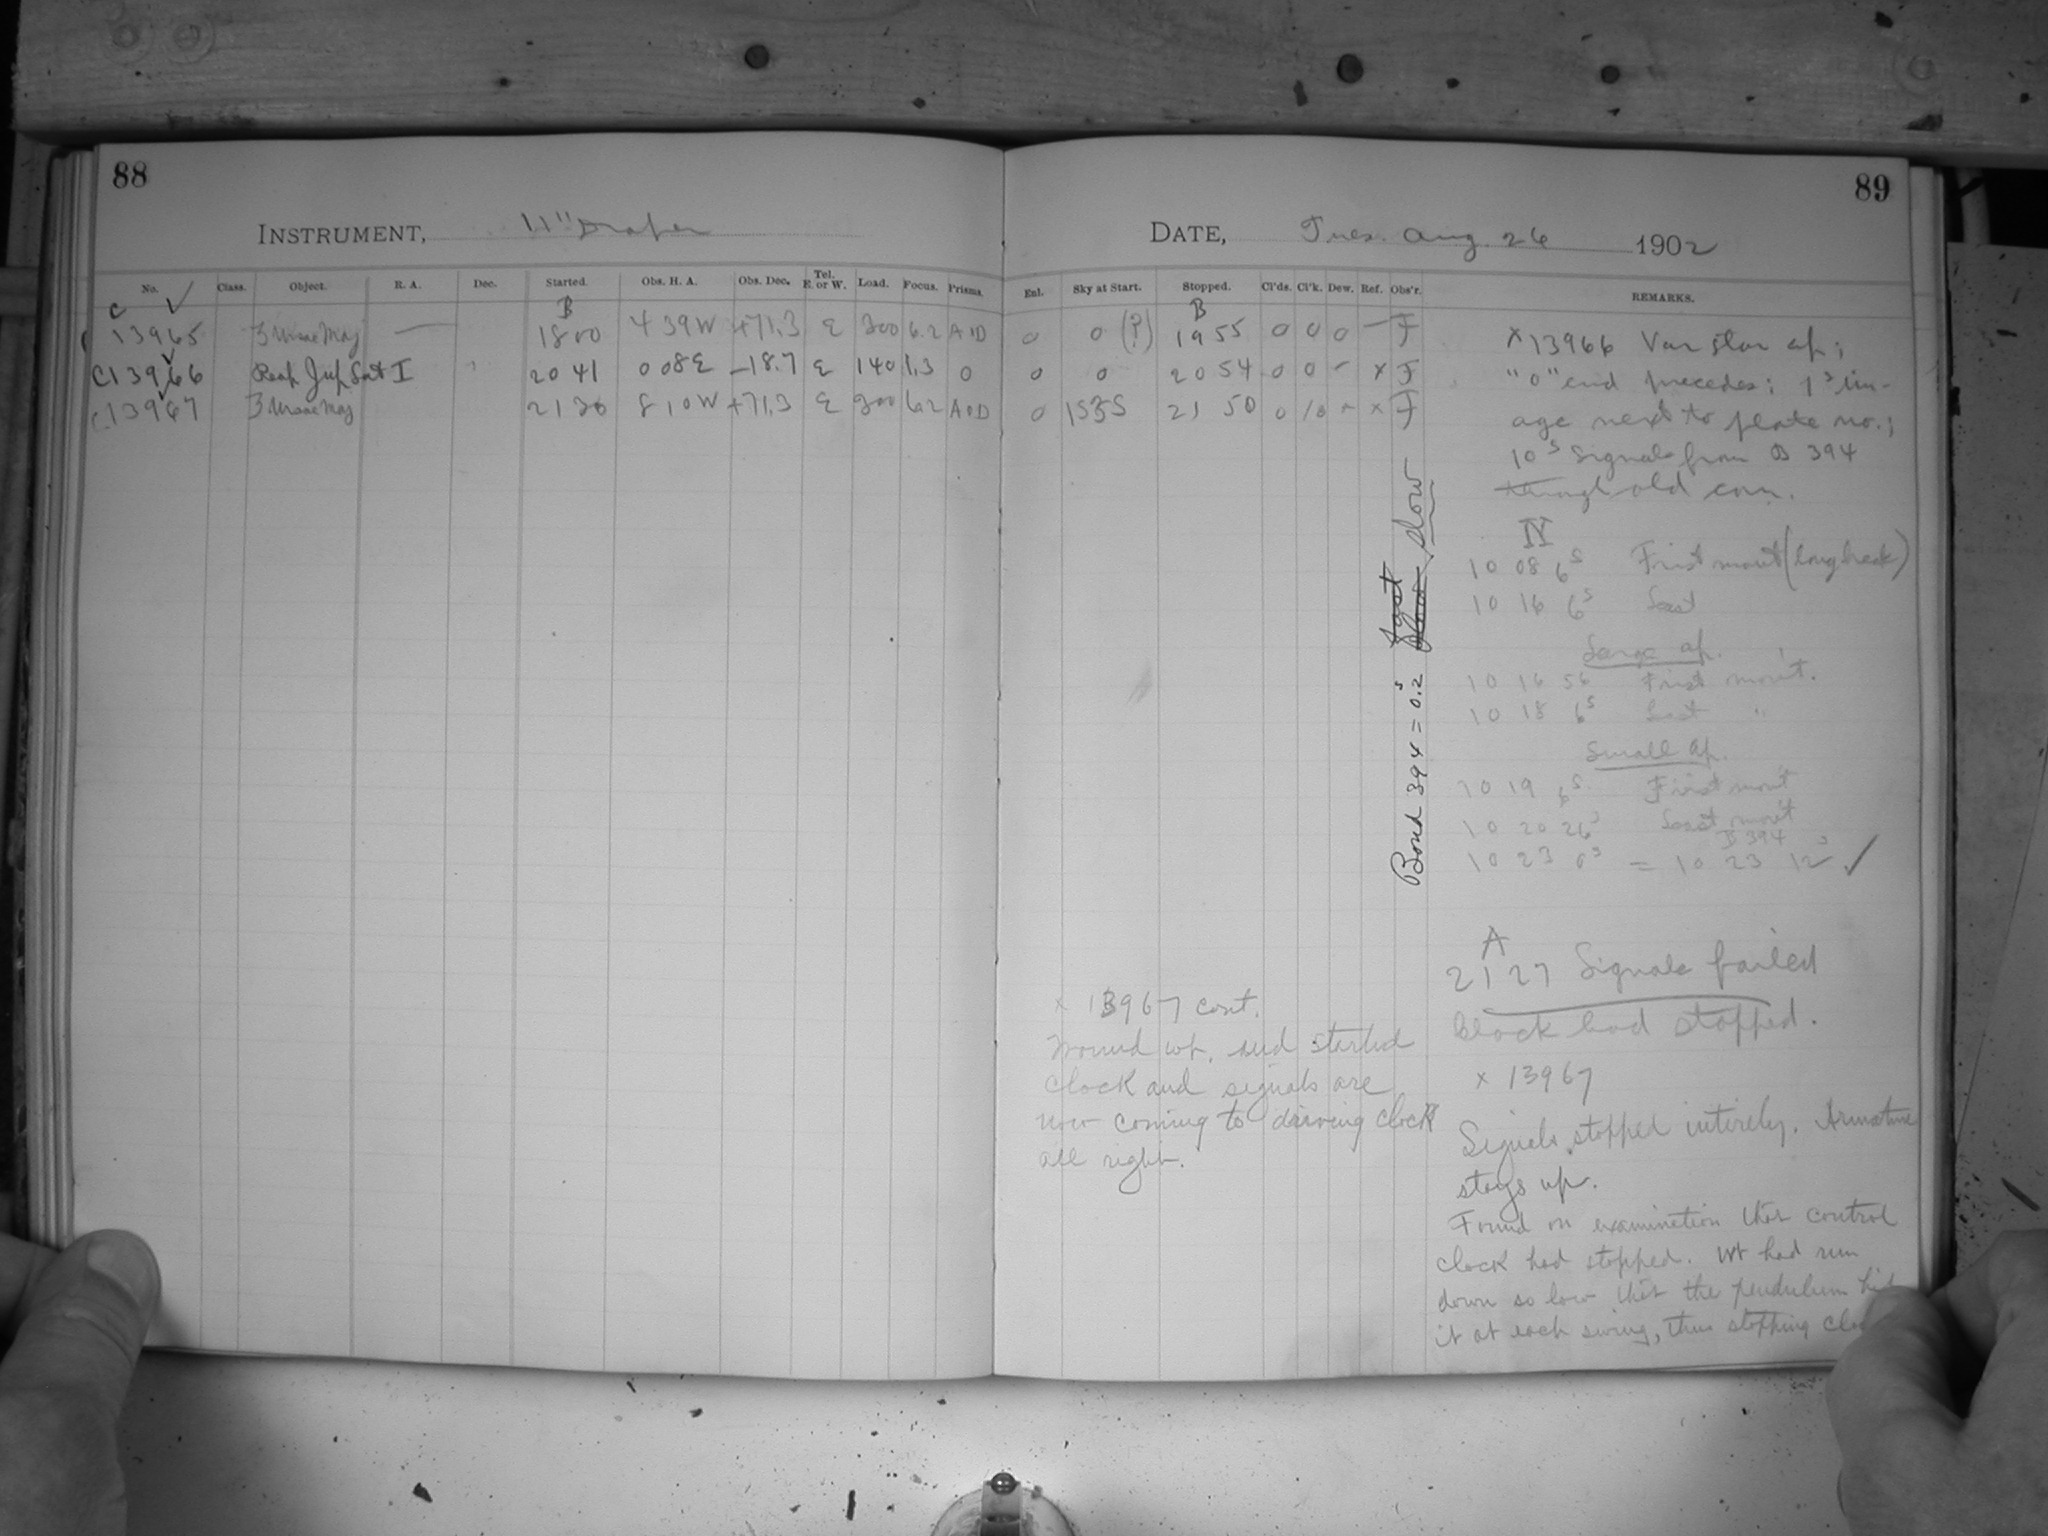 88
INSTRUMENT, 11" Draper
No. Class. Object. R. A. Dec. Started. Obs. H. A. Obs. Dec. Tel. E. or W. Load. Focus. Prisms.
C B
13965 3 Ursae Maj — 18 00 4 39 W +71.3 E 200 6.2 A D
C13966 Reap Jup Sat I 20 41 0 08 E -18.7 E 140 1.3 0
C13967 3 Ursae Maj 21 20 8 10 W +71.3 E 200 6.2 A D
89
DATE, Tues. Aug 26 1902
Enl. Sky at Start. Stopped. Cl'ds. Cl'k. Dew. Ref. Obs'r. REMARKS.
B
0 0 (?) 19 55 0 0 0 — F
0 0 20 54 0 0 - x F
0 1535 21 50 0 10 - x F
x 13966 Var star ap;
"0" end precedes; 1st im-
age next to plate no.;
10s signals from B 394
through old com.
IV
10 08 6s First mov't (long break)
10 16 6s Last
Large ap.
10 16 56 First mov't.
10 18 6s Last "
Small ap.
10 19 6s First mov't
10 20 26s Last mov't
B 394
10 23 0s = 10 23 12s ✓
Bond 394 = 0.2s fast slow slow
A
21 27 Signals failed
Clock had stopped.
x 13967
Signals stopped intirely. Armature
stays up.
Found on examination that control
clock had stopped. Wt had run
down so low that the pendulum hit
it at each swing, thus stopping
x 13967 cont.
Wound wt. and started
clock and signals are
now coming to driving clock
all right.